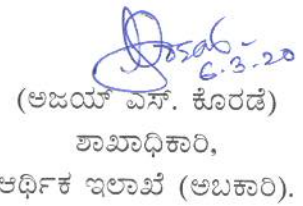 6-3-20
(ಅಜಯ್ ಎಸ್. ಕೊರಡೆ)
ಶಾಖಾಧಿಕಾರಿ,
ಆರ್ಥಿಕ ಇಲಾಖೆ (ಅಬಕಾರಿ).